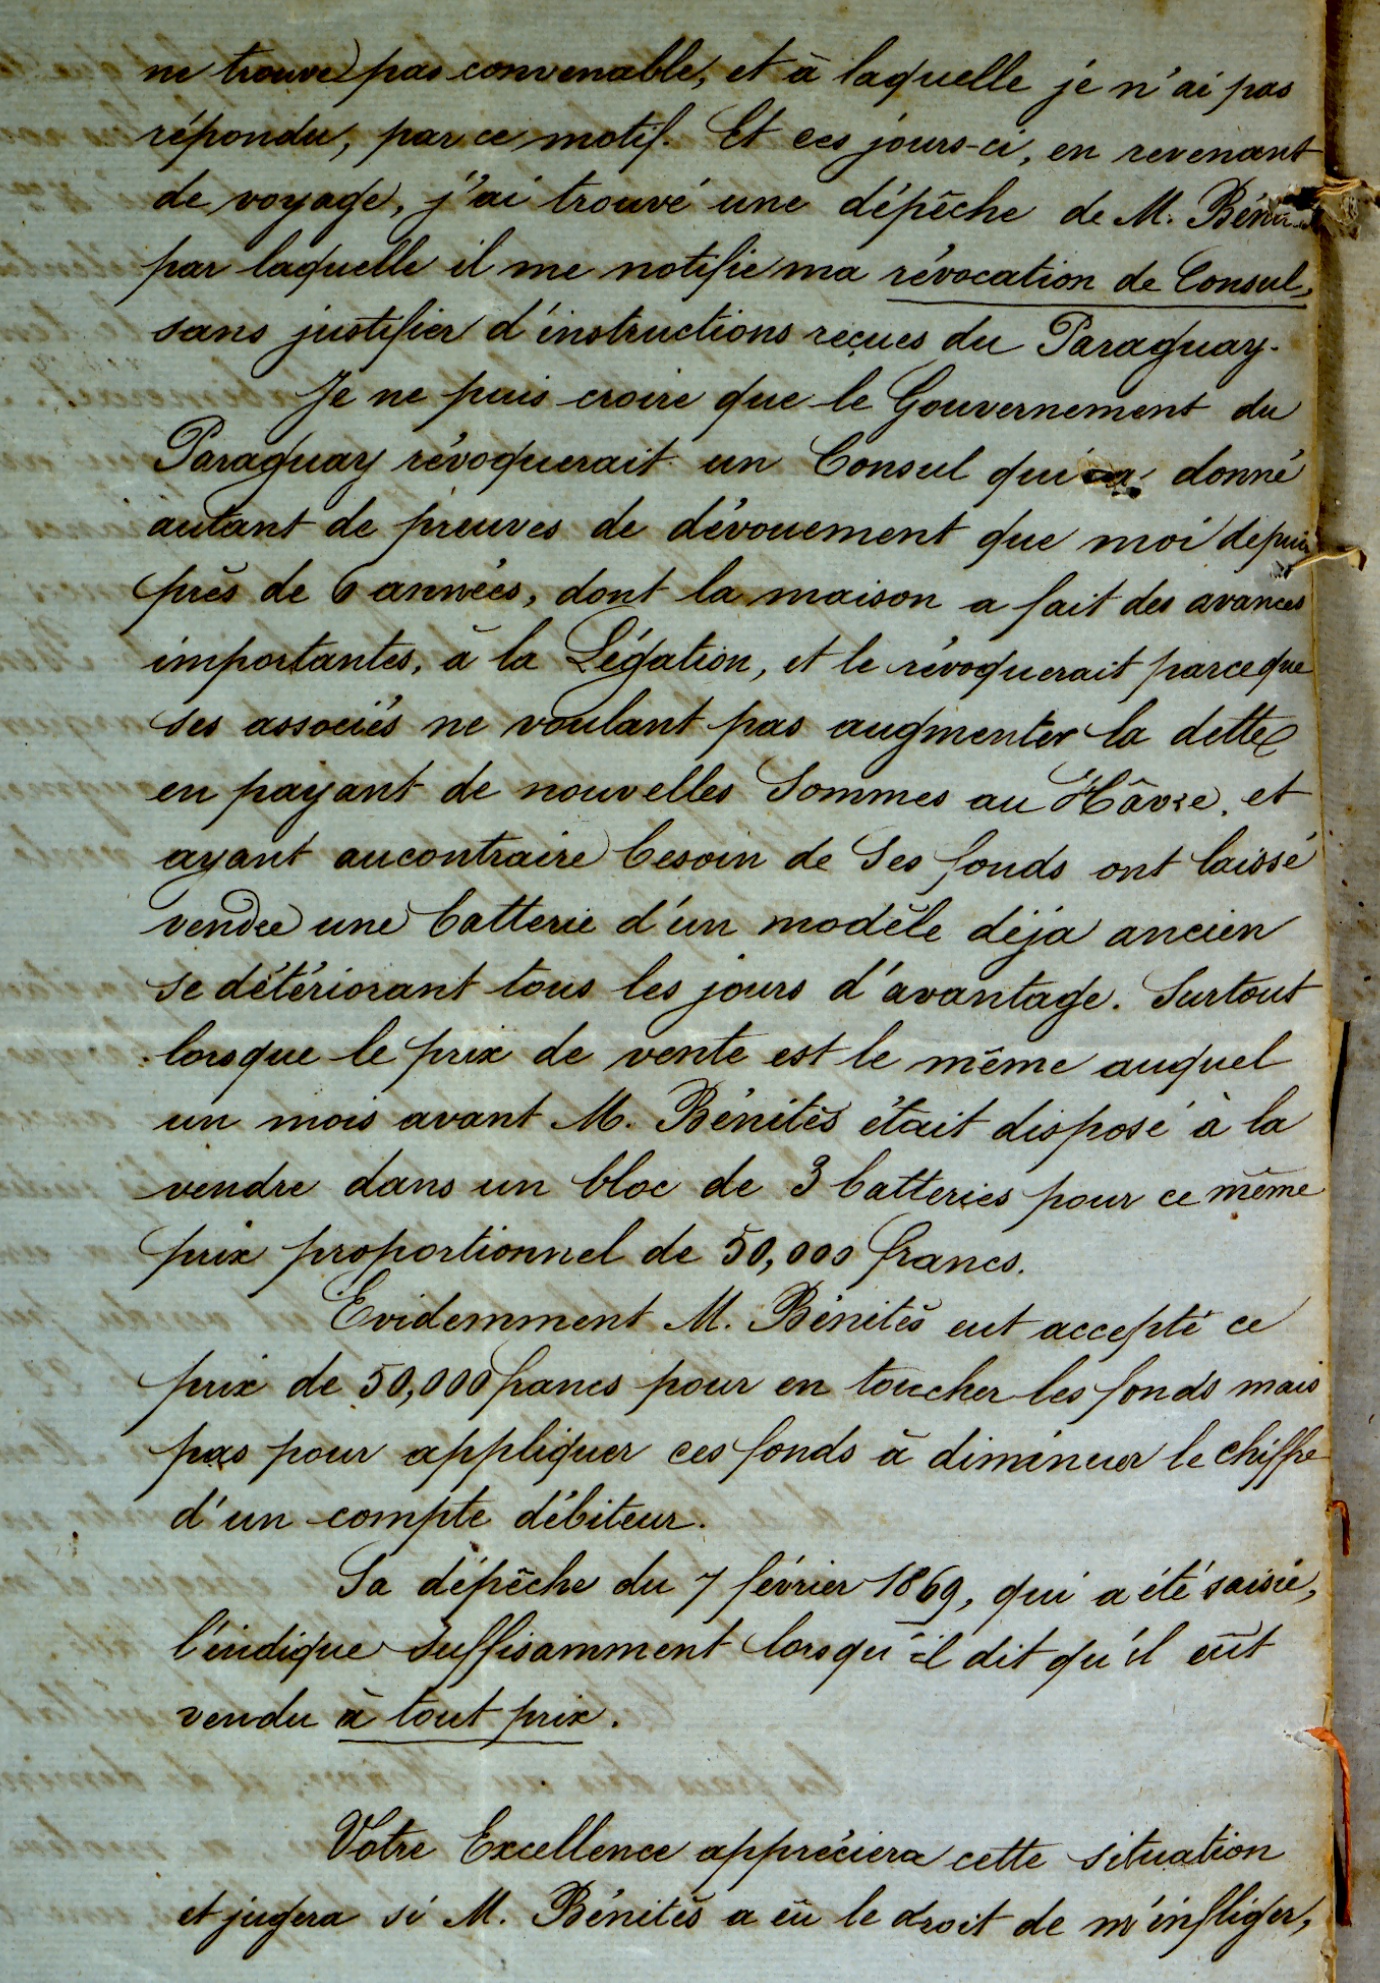 ne trouve pas convenable, et à laquelle je n'ai pas
répondu, par ce motif. Et ces jours-ci, en revenant
de voyage, j'ai trouvé une dépêche de M.
par laquelle il me notifie ma révocation de Consul,
sans justifier d'instructions reçues du Paraguay.
Je ne puis croire que le Gouvernement du
Paraguay révoquerait un Consul qui a donné
autant de preuves de dévouement que moi depuis
près de 6 années, dont la maison a fait des avances
importantes, à la Légation, et le révoquerait parceque
ses associés ne voulant pas augmenter la dette
en payant de nouvelles Sommes au Hâvre, et
ayant aucontraire besoin de Ses fonds ont laissé
vendre une batterie d'un modèle déja ancien
se détériorant tous les jours d'avantage. Surtout
lorsque le prix de vente est le même auquel
un mois avant M. Bénitès était disposé à la
vendre dans un bloc de 3 batteries pour ce même
prix proportionnel de 50,000 francs.
Evidemment M. Bénitès eut accepté ce
prix de 50,000 francs pour en toucher les fonds mais
pas pour appliquer ces fonds à diminuer le chiffre
d'un compte débiteur.
Sa dépêche du 7 février 1869, qui a été saisie,
l'indique suffisamment lorsqu'il dit qu'il eût
vendu à tout prix.
Votre Excellence appréciera cette situation
et jugera si M. Bénitès a eû le droit de m'infliger,